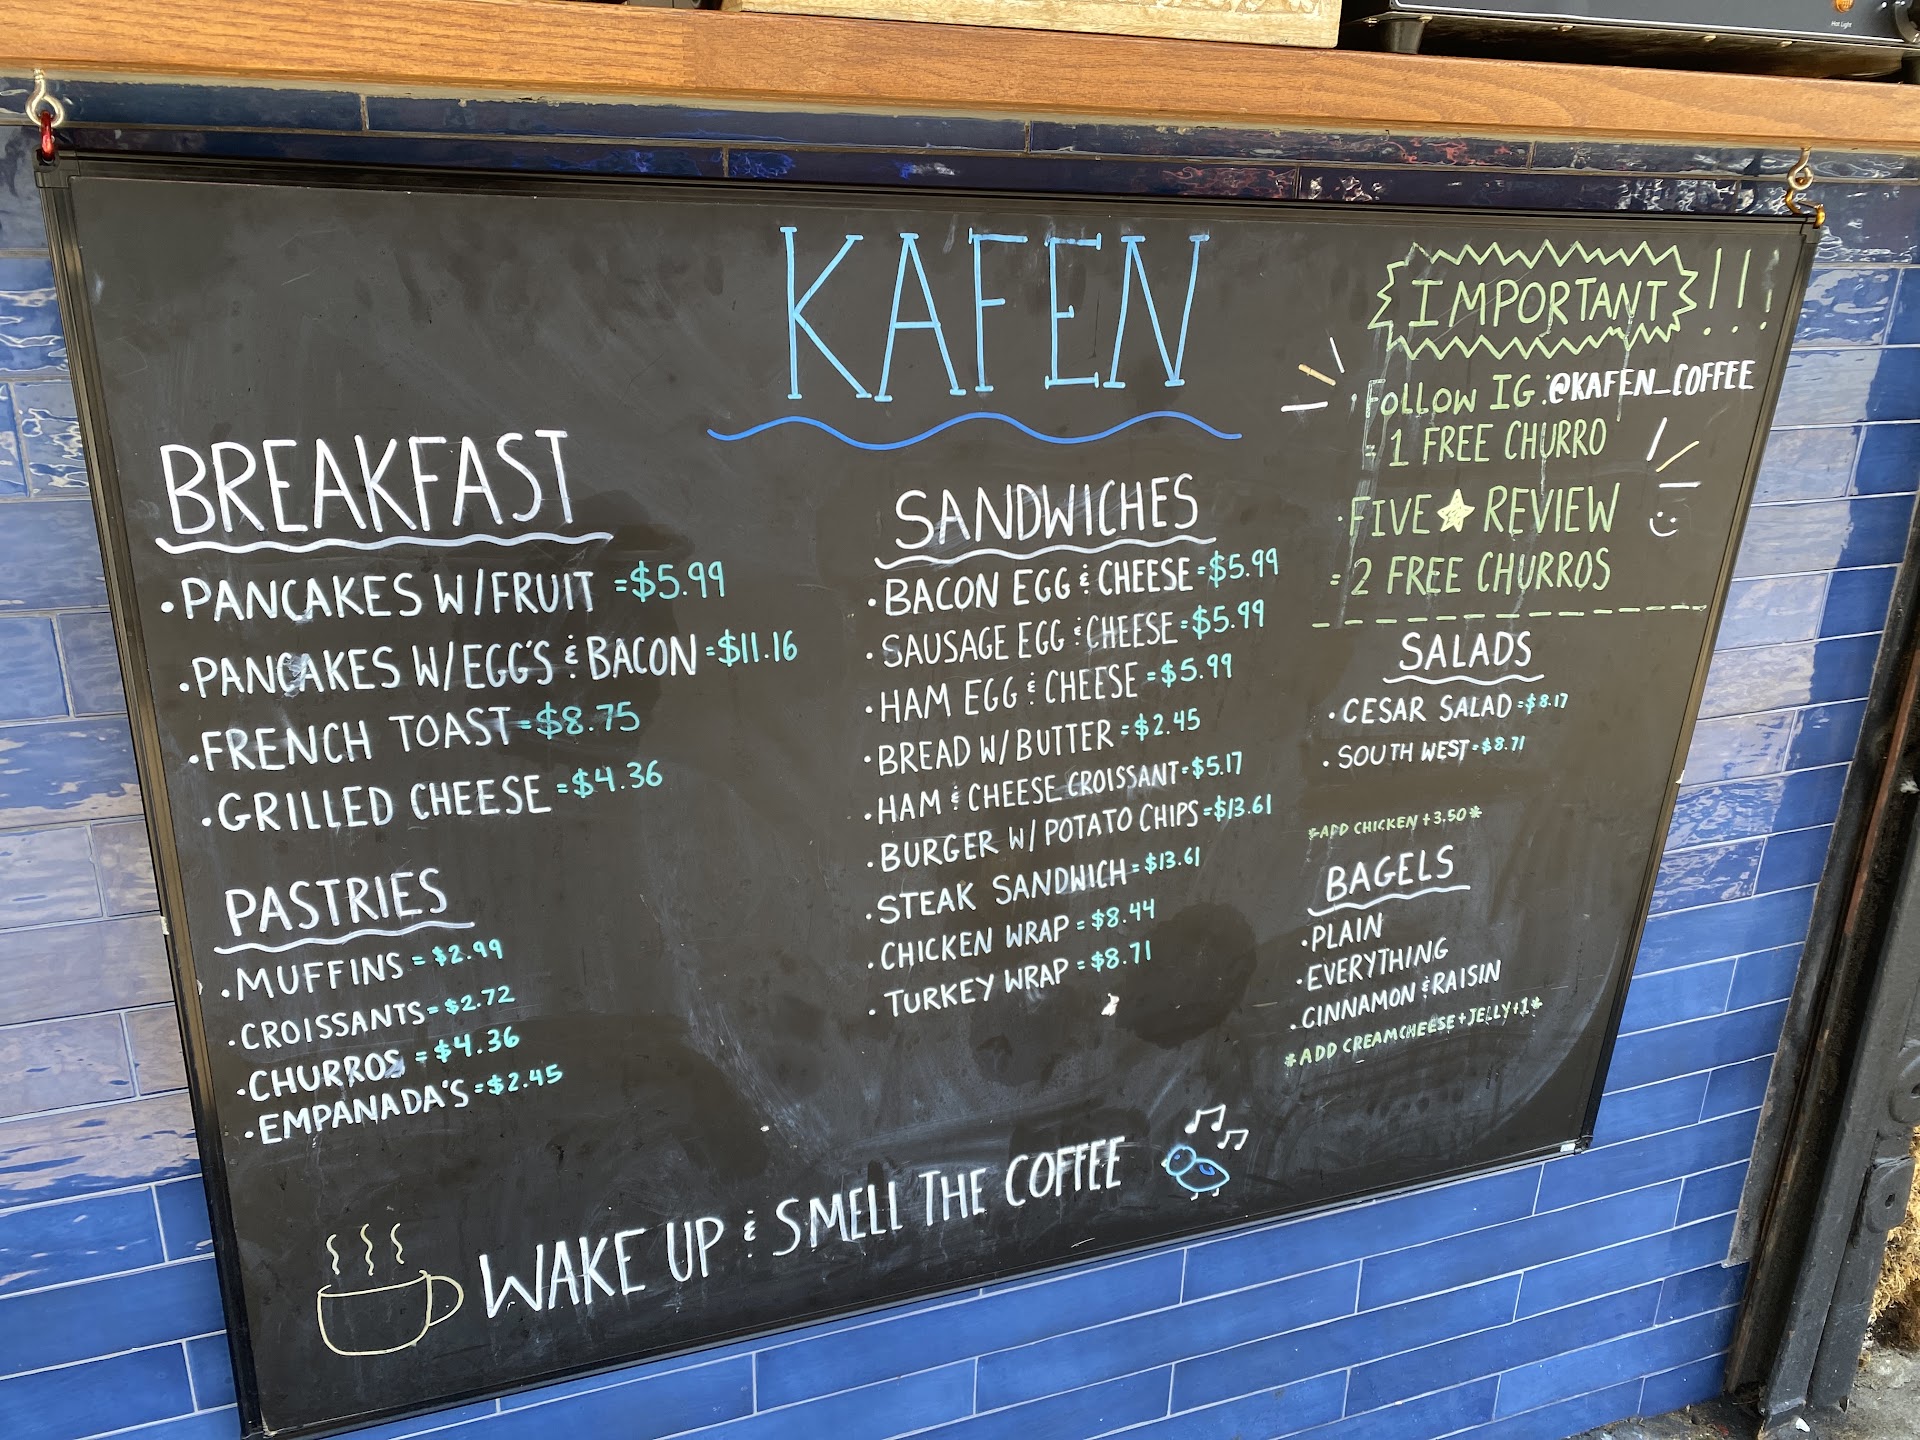 KAFEN
BREAKFAST
• PANCAKES W/FRUIT = $5.99
• PANCAKES W/EGG'S & BACON = $11.16
• FRENCH TOAST = $8.75
• GRILLED CHEESE = $4.36
PASTRIES
• MUFFINS = $2.99
• CROISSANTS = $2.72
• CHURROS = $4.36
• EMPANADA'S = $2.45
SANDWICHES
• BACON EGG & CHEESE = $5.99
• SAUSAGE EGG & CHEESE = $5.99
• HAM EGG & CHEESE = $5.99
• BREAD W/BUTTER = $2.45
• HAM & CHEESE CROISSANT = $5.17
• BURGER W/ POTATO CHIPS = $13.61
• STEAK SANDWICH = $13.61
• CHICKEN WRAP = $8.44
• TURKEY WRAP = $8.71
IMPORTANT!!!
• FOLLOW IG: @KAFEN_COFFEE
= 1 FREE CHURRO
• FIVE ★ REVIEW
= 2 FREE CHURROS
SALADS
• CESAR SALAD = $8.17
• SOUTH WEST = $8.71
*ADD CHICKEN + 3.50*
BAGELS
• PLAIN
• EVERYTHING
• CINNAMON & RAISIN
*ADD CREAMCHEESE + JELLY + 1*
WAKE UP & SMELL THE COFFEE